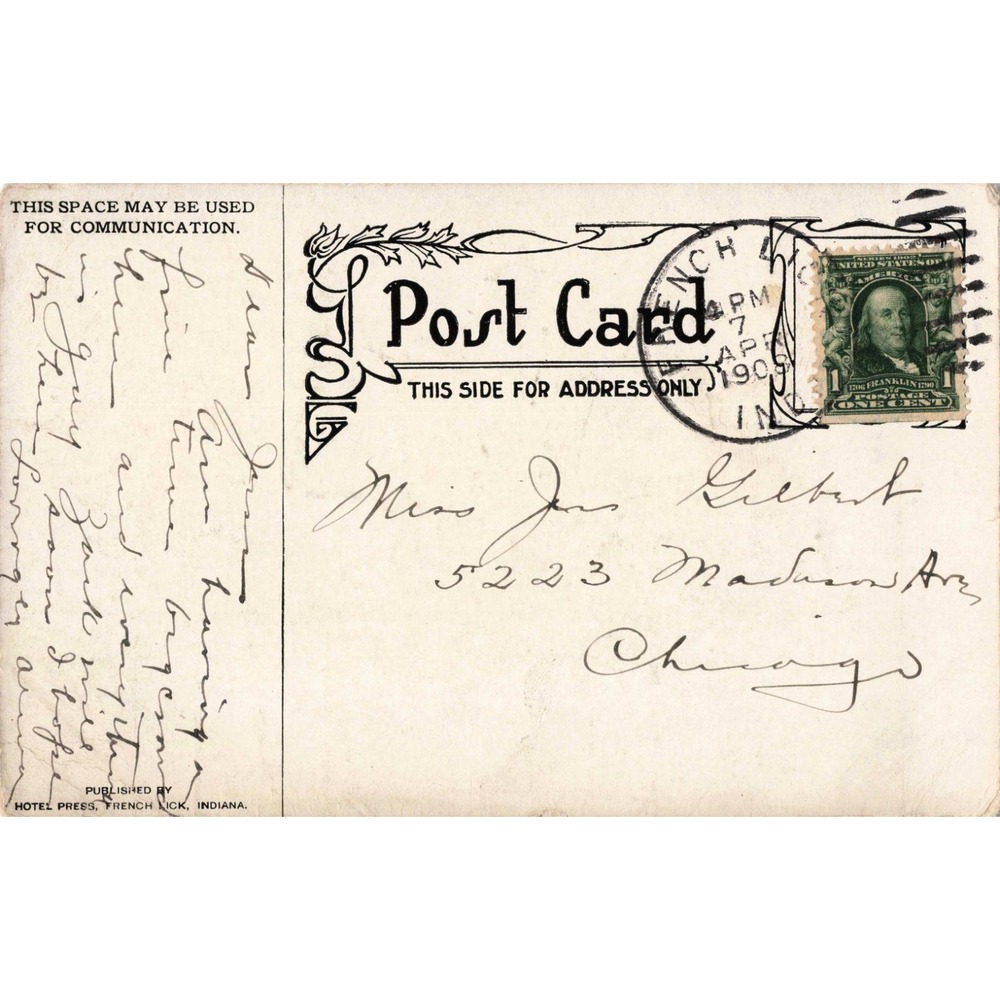 THIS SPACE MAY BE USED
FOR COMMUNICATION.
Dear
Am having a
fine time big crowd
here and everything
is gay
be here soon I hope
Anna
PUBLISHED BY
HOTEL PRESS, FRENCH LICK, INDIANA.
Post Card
THIS SIDE FOR ADDRESS ONLY.
FRENCH LICK
4 PM
7
APR
190
IND
SERIES 1902
UNITED STATES OF
AMERICA
1 1
1706 FRANKLIN 1790
POSTAGE
ONE CENT
Miss Gilbert
5223 Madison Ave
Chicago